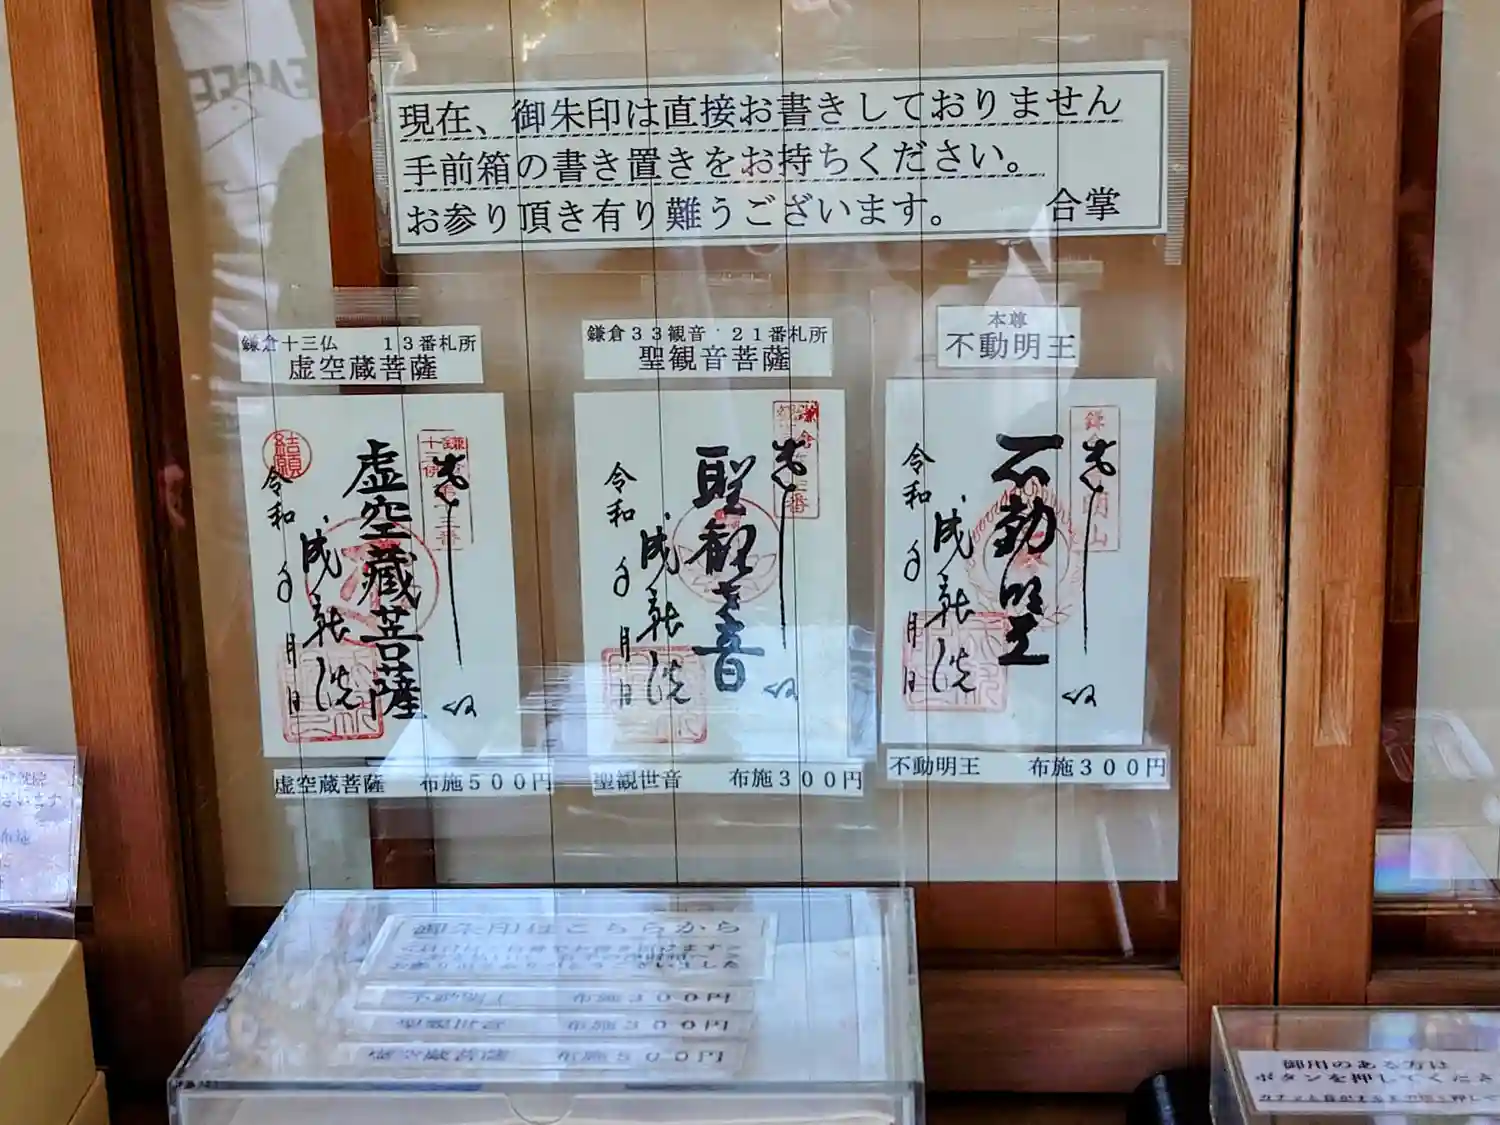 現在、御朱印は直接お書きしておりません
手前箱の書き置きをお持ちください。
お参り頂き有り難うございます。 合掌
鎌倉十三仏 13番札所
虚空蔵菩薩
鎌倉33観音・21番札所
聖観音菩薩
本尊
不動明王
結願
虚空蔵菩薩
令和 年 月 日
成就院
聖観音
令和 年 月 日
成就院
不動明王
令和 年 月 日
成就院
虚空蔵菩薩 布施500円
聖観世音 布施300円
不動明王 布施300円
御朱印はこちらから
不動明王 布施300円
聖観世音 布施300円
虚空蔵菩薩 布施500円
御用のある方は
ボタンを押してくださ